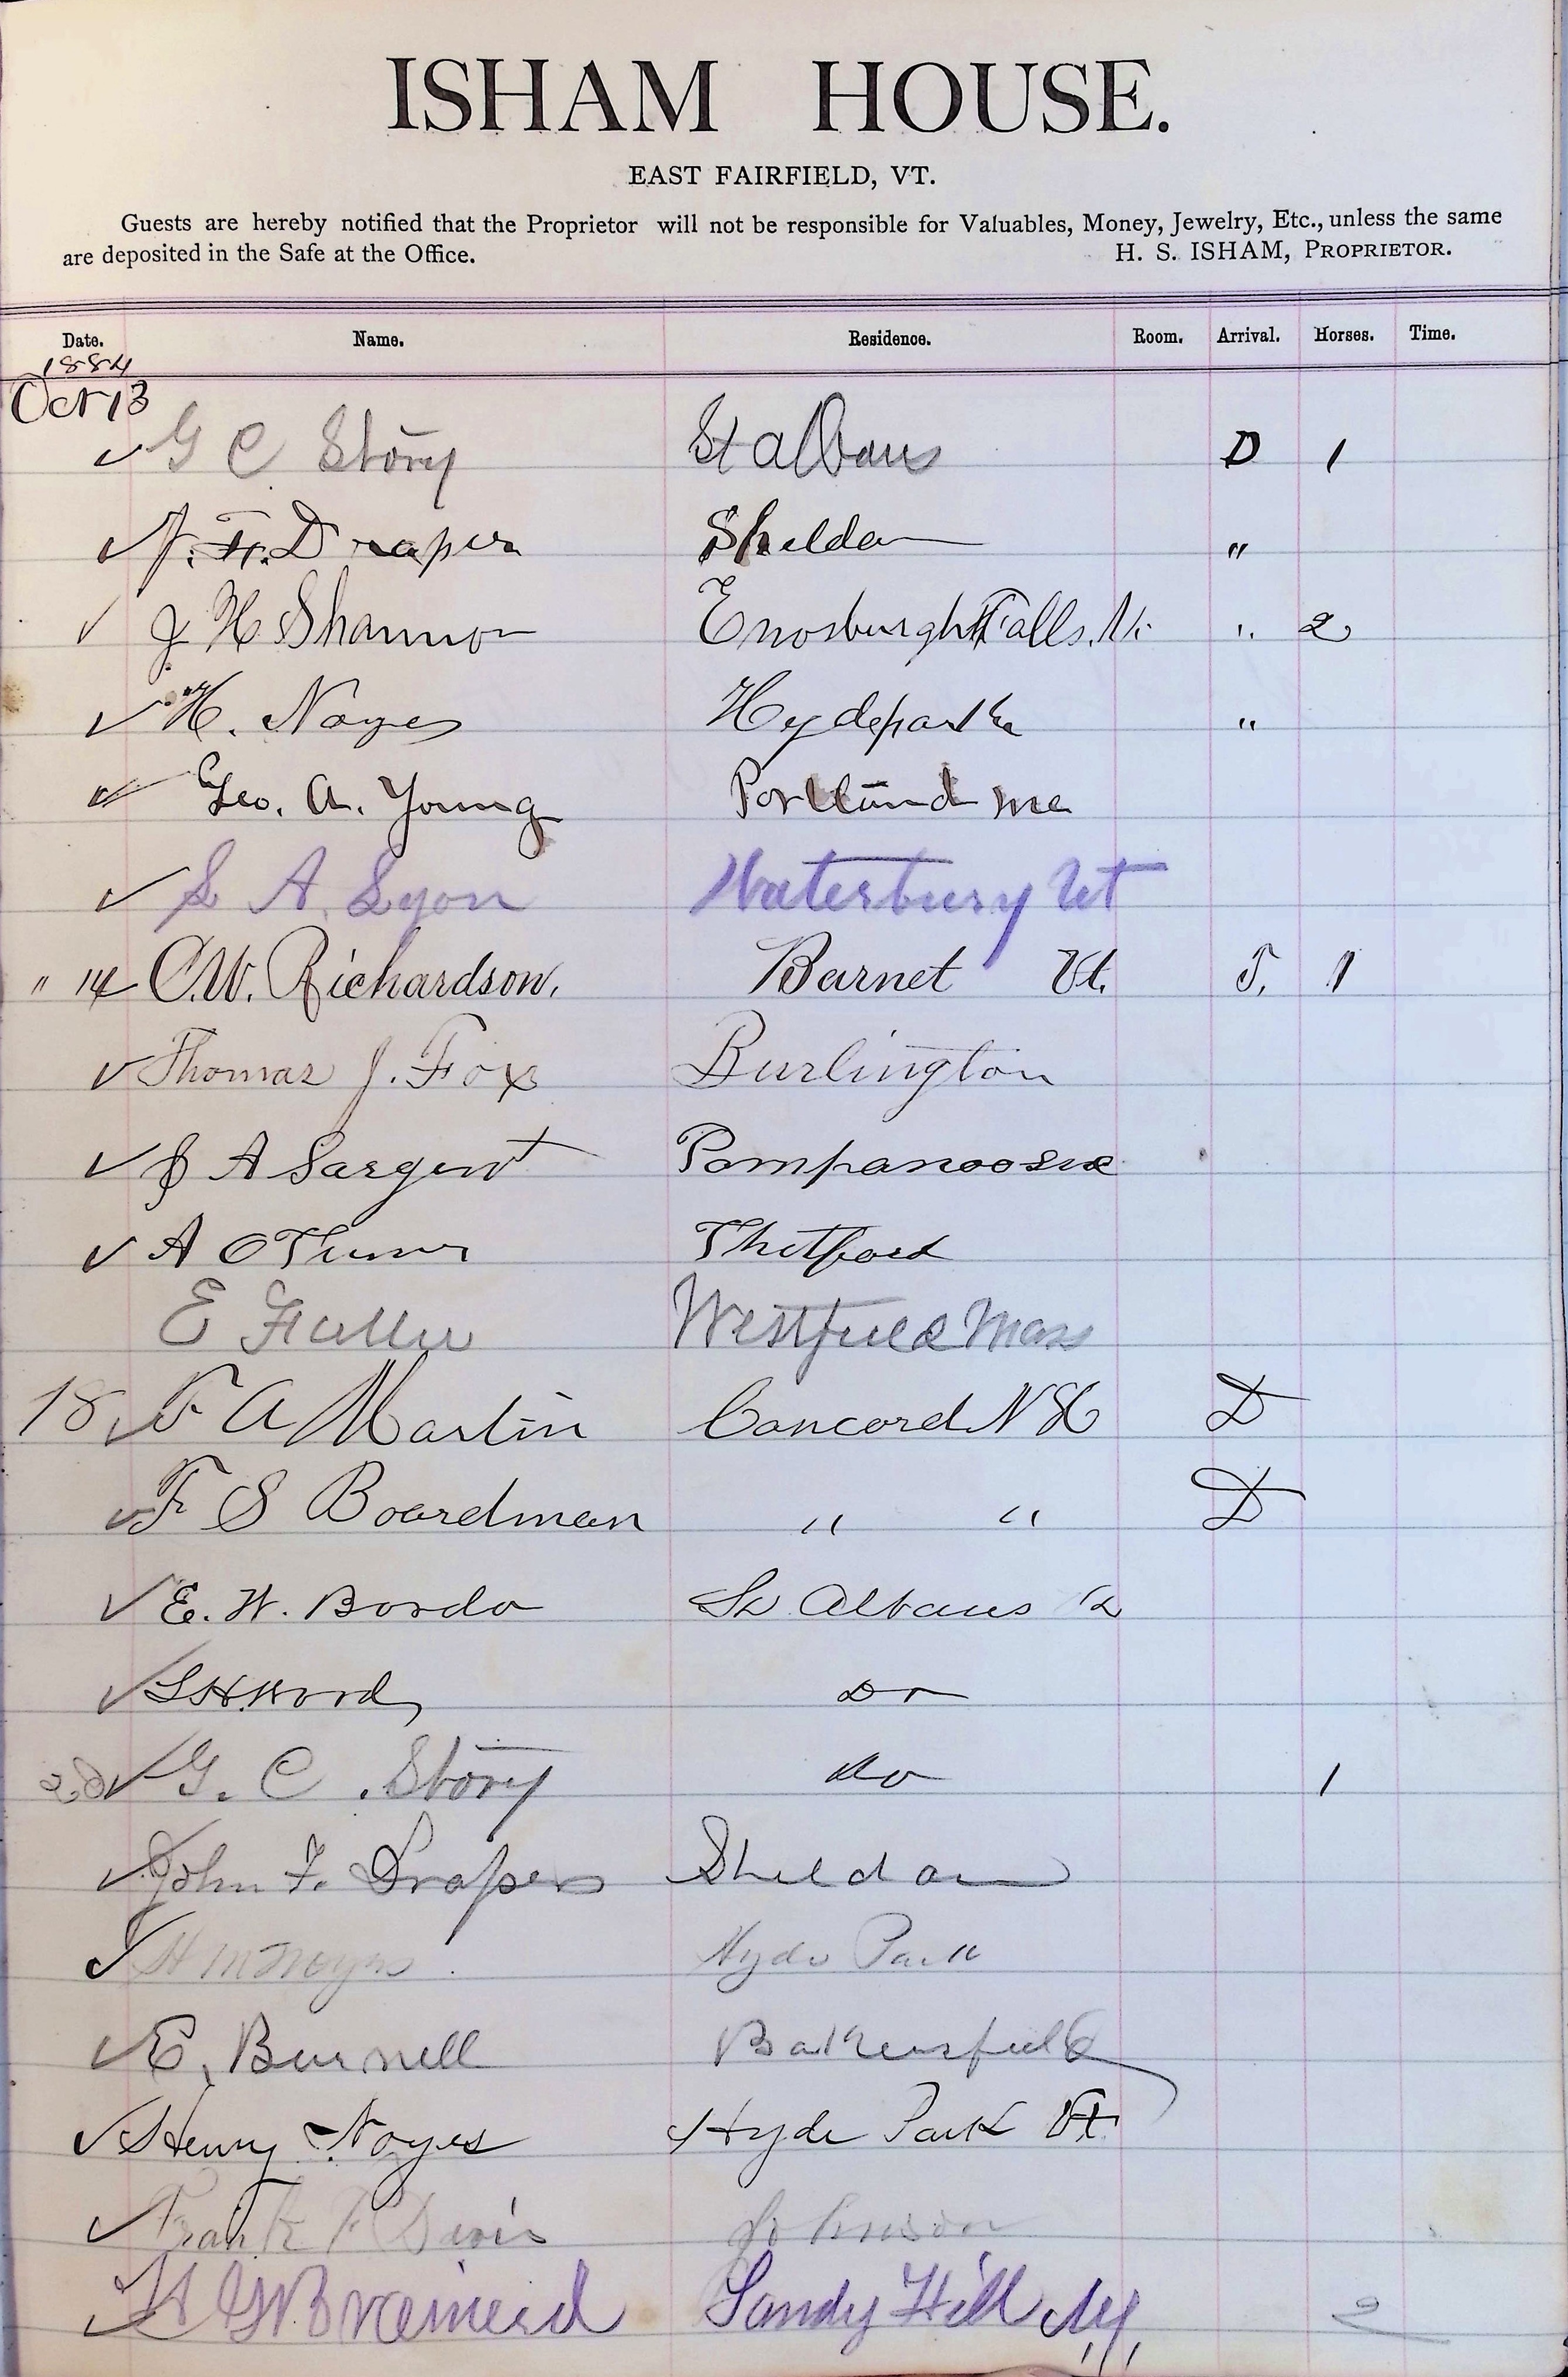 ISHAM HOUSE.
EAST FAIRFIELD, VT.
Guests are hereby notified that the Proprietor will not be responsible for Valuables, Money, Jewelry, Etc., unless the same
are deposited in the Safe at the Office. H. S. ISHAM, PROPRIETOR.
Date. Name. Residence. Room. Arrival. Horses. Time.
1884
Oct 13
G C Story St Albans D 1
J. F. Draper Sheldon "
J H Shannon Enosburgh Falls, Vt. " 2
H. Noyes Hydepark "
Geo. A. Young Portland Me
S A Lyon Waterbury Vt
" 14 C.W. Richardson. Barnet Vt. T. 1
Thomas J. Fox Burlington
J A Sargent Pompanoosuc
A O Thetford
E Fuller Westfield Mass
18 F A Martin Concord N H D
F S Boardman " " D
E. W. Bordo St Albans Vt
S H Wood Do
20 G. C. Story do 1
John F. Draper Sheldon
H M Noyes Hyde Park
E. Burnell Bakersfield
Henry Noyes Hyde Park Vt
Frank F Davis Johnson
H G Brainerd Sandy Hill N.Y. 2